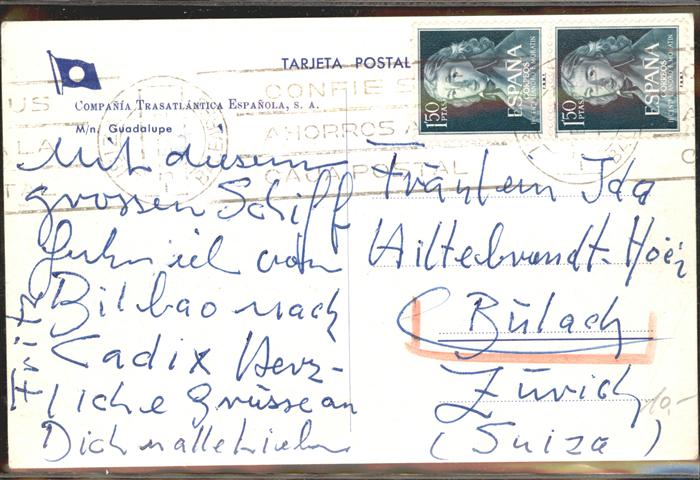 TARJETA POSTAL
COMPAÑÍA TRASATLÁNTICA ESPAÑOLA, S. A.
M/n. Guadalupe
CONFIE S
AHORROS A
CAJA POSTAL
1'50 PTAS
ESPAÑA
CORREOS
1'50 PTAS
ESPAÑA
CORREOS
Mit diesem
grossen Schiff
fuhr ich von
Bilbao nach
Cadix Herz-
liche Grüsse an
Dich u alle Lieben
Fritz
Fräulein Ida
Hiltebrandt-
Bülach
Zürich
(Suiza)
10.-